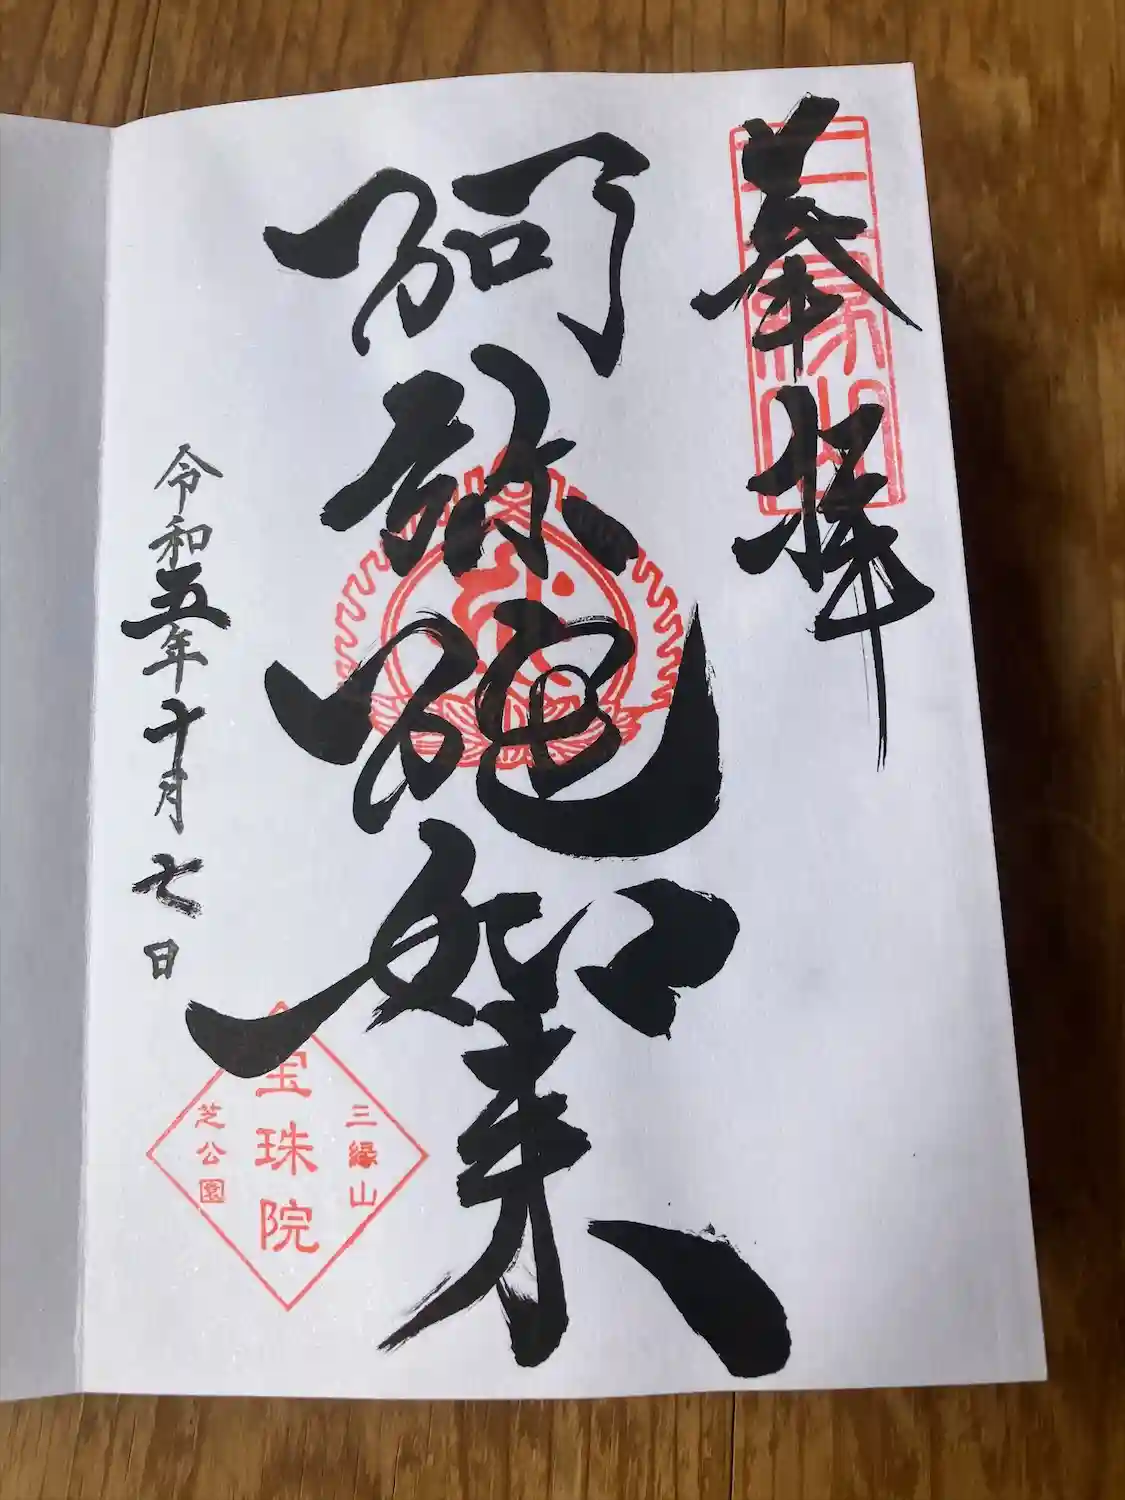 奉拝
三縁山
阿弥陀如来
令和五年十月七日
三縁山
宝珠院
芝公園